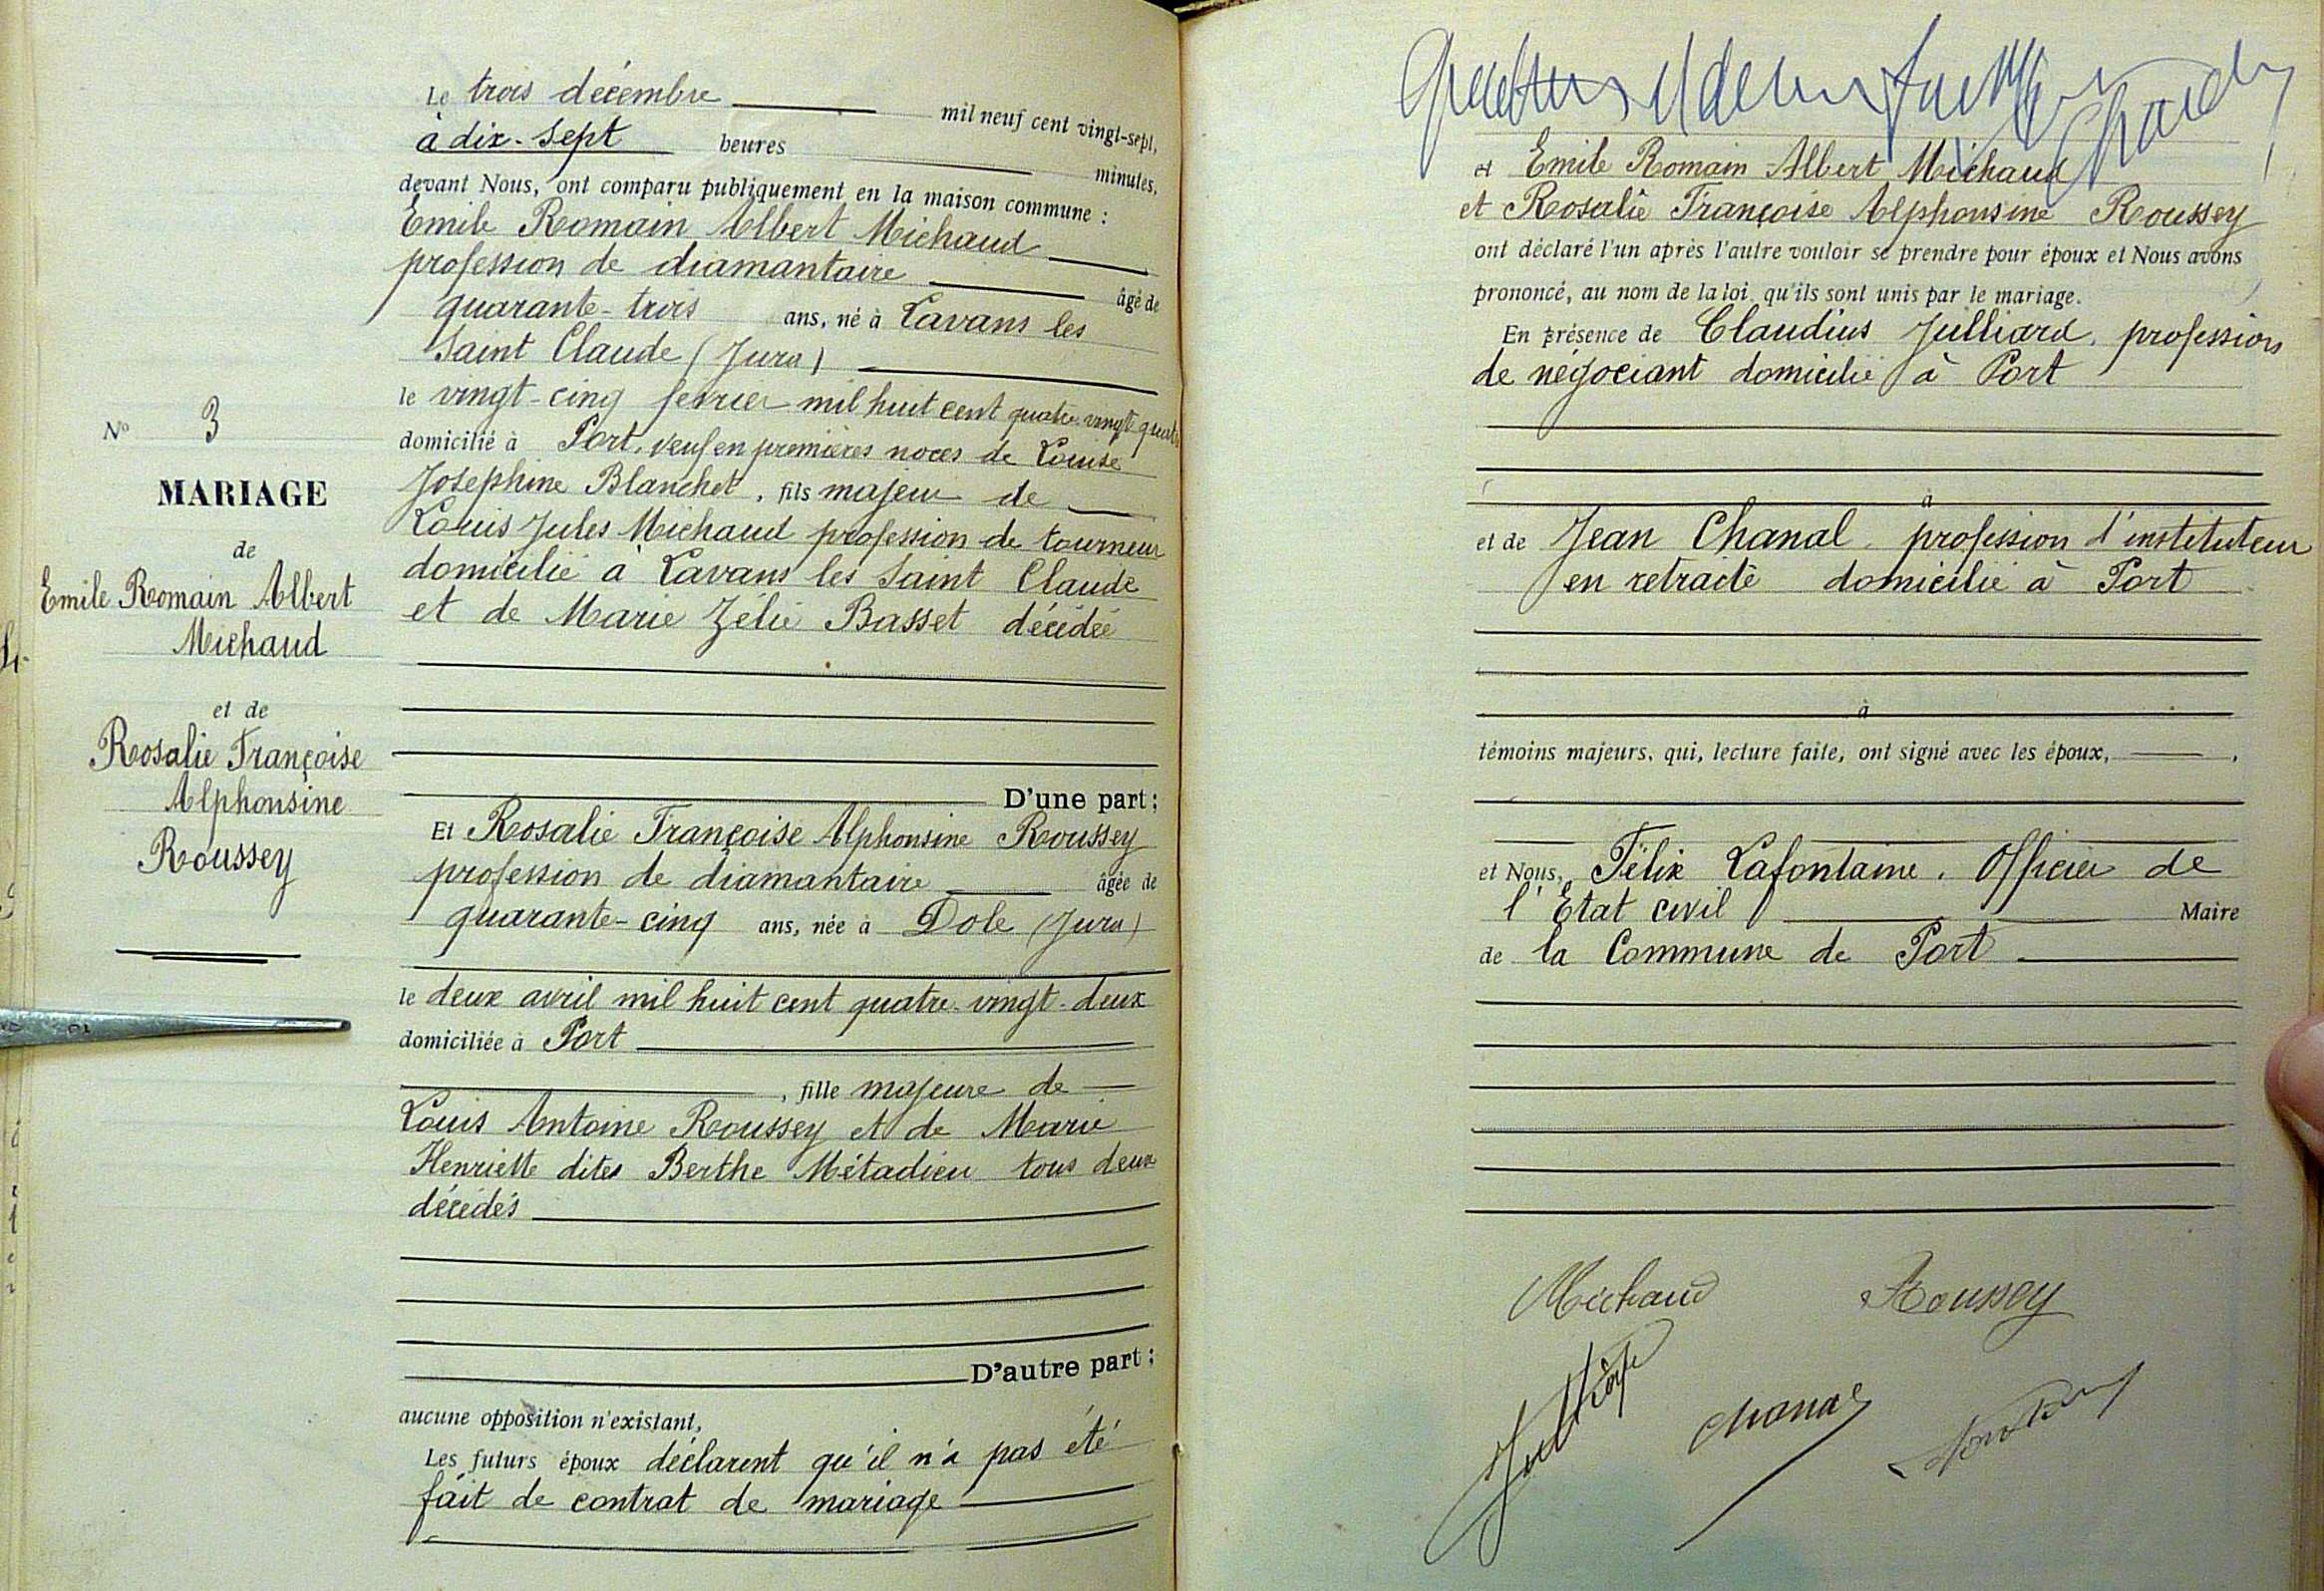 N° 3
MARIAGE
de
Emile Romain Albert
Michaud
et de
Rosalie Françoise
Alphonsine
Roussey
Le trois décembre mil neuf cent vingt-sept,
à dix-sept heures minutes,
devant Nous, ont comparu publiquement en la maison commune :
Emile Romain Albert Michaud
profession de diamantaire âgé de
quarante-trois ans, né à Lavans les
Saint Claude (Jura)
le vingt-cinq fevrier mil huit cent quatre-vingt quatre
domicilié à Port, veuf en premières noces de Louise
Josephine Blanchet, fils majeur de
Louis Jules Michaud profession de tourneur
domicilié à Lavans les Saint Claude
et de Marie Zélie Basset décédée
D'une part ;
Et Rosalie Françoise Alphonsine Roussey
profession de diamantaire âgée de
quarante-cinq ans, née à Dole (Jura)
le deux avril mil huit cent quatre-vingt-deux
domiciliée à Port
, fille majeure de
Louis Antoine Roussey et de Marie
Henriette dites Berthe Métadieu tous deux
décédés
D'autre part ;
aucune opposition n'existant,
Les futurs époux déclarent qu'il n'a pas été
fait de contrat de mariage
et Emile Romain Albert Michaud
et Rosalie Françoise Alphonsine Roussey
ont déclaré l'un après l'autre vouloir se prendre pour époux et Nous avons
prononcé, au nom de la loi, qu'ils sont unis par le mariage.
En présence de Claudius Julliard, profession
de négociant domicilié à Port
à
et de Jean Chanal profession d'instituteur
en retracte domicilié à Port
à
témoins majeurs, qui, lecture faite, ont signé avec les époux,
et Nous, Félix Lafontaine, Officier de
l'Etat civil Maire
de la Commune de Port
Michaud Roussey
Chanal